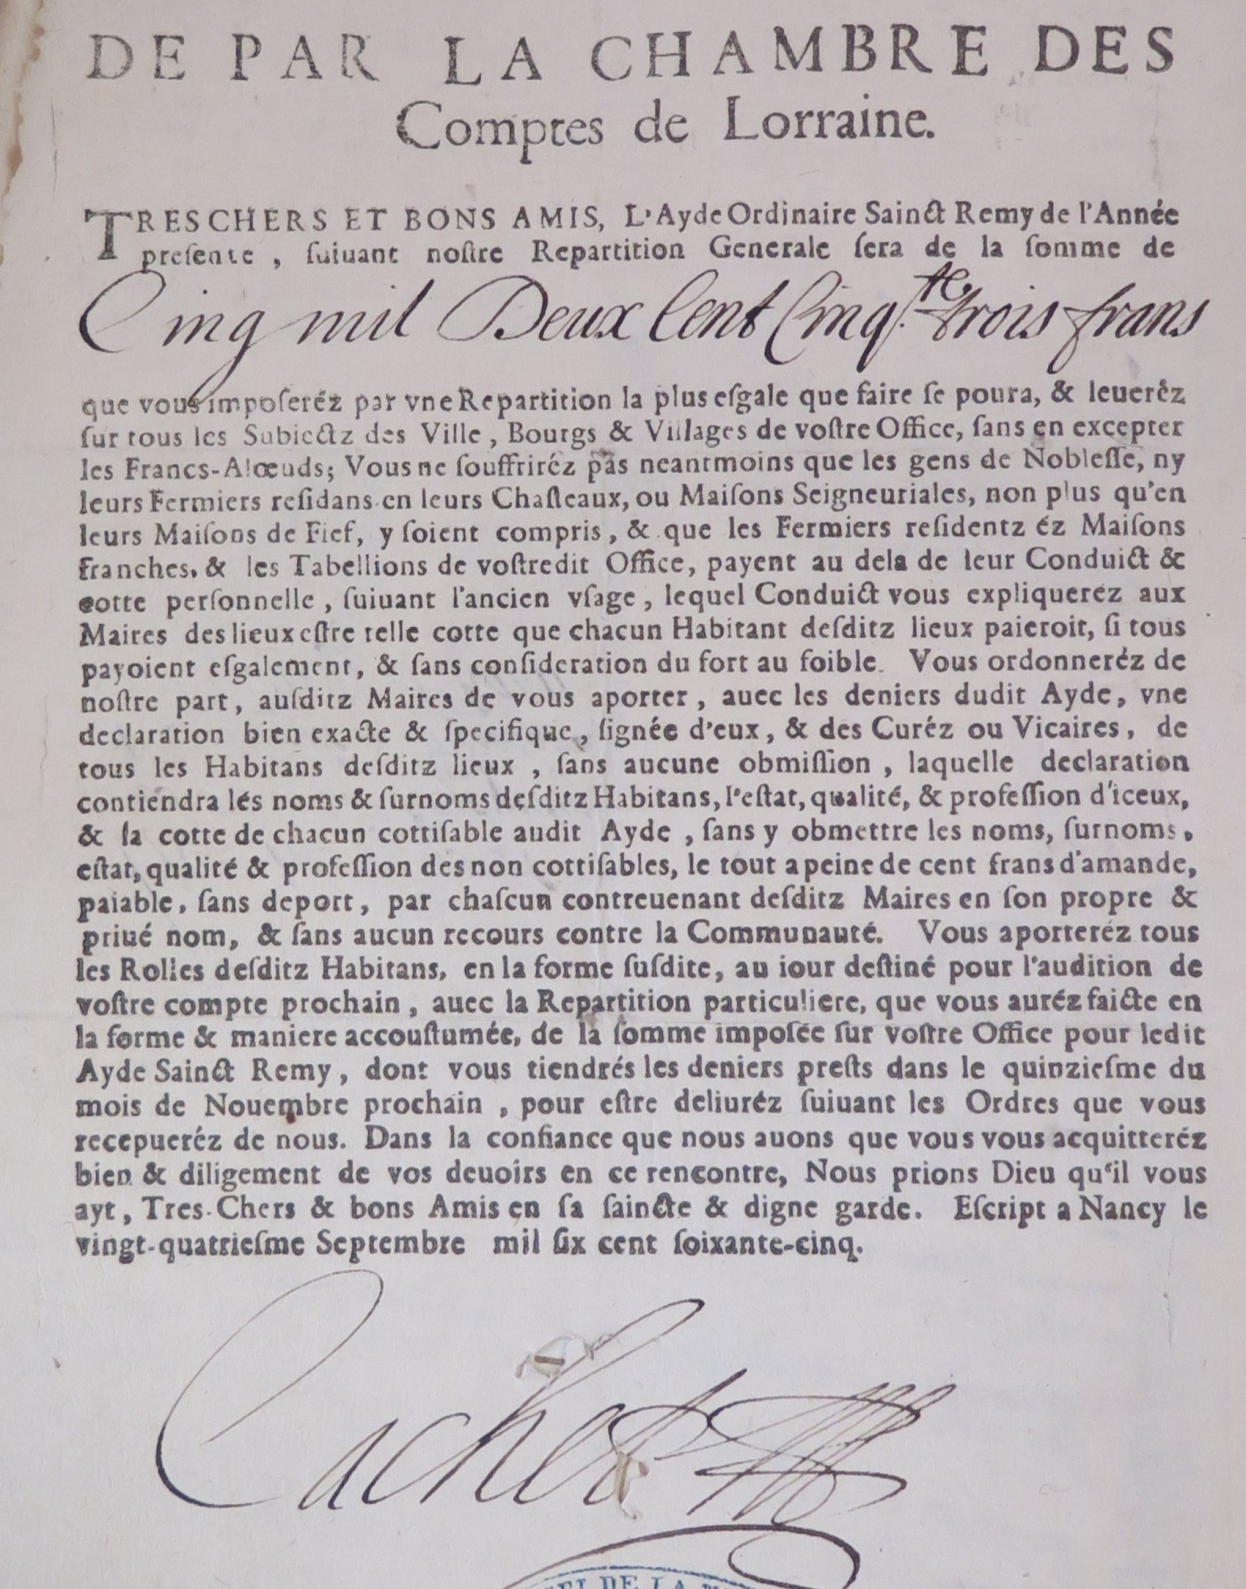 DE PAR LA CHAMBRE DES
Comptes de Lorraine.
TRESCHERS ET BONS AMIS, L'Ayde Ordinaire Sainct Remy de l'Année
presente, suiuant nostre Repartition Generale sera de la somme de
Cinq mil Deux Cent Cinq.te trois frans
que vous imposeréz par vne Repartition la plus esgale que faire se poura, & leueréz
sur tous les Subiectz des Ville, Bourgs & Villages de vostre Office, sans en excepter
les Francs-Alœuds; Vous ne souffriréz pas neantmoins que les gens de Noblesse, ny
leurs Fermiers residans en leurs Chasteaux, ou Maisons Seigneuriales, non plus qu'en
leurs Maisons de Fief, y soient compris, & que les Fermiers residentz éz Maisons
franches, & les Tabellions de vostredit Office, payent au dela de leur Conduict &
cotte personnelle, suiuant l'ancien vsage, lequel Conduict vous expliqueréz aux
Maires des lieux estre telle cotte que chacun Habitant desditz lieux paieroit, si tous
payoient esgalement, & sans consideration du fort au foible. Vous ordonneréz de
nostre part, ausditz Maires de vous aporter, auec les deniers dudit Ayde, vne
declaration bien exacte & specifique, signée d'eux, & des Curéz ou Vicaires, de
tous les Habitans desditz lieux, sans aucune obmission, laquelle declaration
contiendra lés noms & surnoms desditz Habitans, l'estat, qualité, & profession d'iceux,
& la cotte de chacun cottisable audit Ayde, sans y obmettre les noms, surnoms,
estat, qualité & profession des non cottisables, le tout a peine de cent frans d'amande,
paiable, sans deport, par chascun contreuenant desditz Maires en son propre &
priué nom, & sans aucun recours contre la Communauté. Vous aporteréz tous
les Rolles desditz Habitans, en la forme susdite, au iour destiné pour l'audition de
vostre compte prochain, auec la Repartition particuliere, que vous auréz faicte en
la forme & maniere accoustumée, de la somme imposée sur vostre Office pour ledit
Ayde Sainct Remy, dont vous tiendrés les deniers prests dans le quinziesme du
mois de Nouembre prochain, pour estre deliuréz suiuant les Ordres que vous
recepueréz de nous. Dans la confiance que nous auons que vous vous acquitteréz
bien & diligement de vos deuoirs en ce rencontre, Nous prions Dieu qu'il vous
ayt, Tres-Chers & bons Amis en sa saincte & digne garde. Escript a Nancy le
vingt-quatriesme Septembre mil six cent soixante-cinq.
Cachet
DE LA